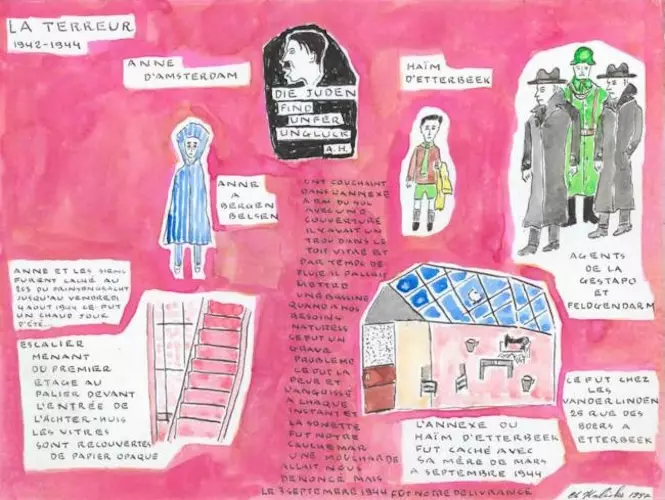 LA TERREUR
1942-1944
ANNE
D'AMSTERDAM
DIE JUDEN
FIND
UNFER
UNGLUCK
A.H.
HAÏM
D'ETTERBEEK
ANNE
A
BERGEN
BELSEN
AGENTS
DE LA
GESTAPO
ET
FELDGENDARM
ANNE ET LES SIENS
FURENT CACHÉ AU
263 DU PRINSENGRACHT
JUSQU'AU VENDREDI
4 AOUT 1944 CE FUT
UN CHAUD JOUR
D'ÉTÉ
ESCALIER
MENANT
DU PREMIER
ETAGE AU
PALIER DEVANT
L'ENTRÉE DE
L'ACHTER-HUIS
LES VITRES
SONT RECOUVERTES
DE PAPIER OPAQUE
ONT COUCHAINT
DANS L'ANNEXE
A RAI DU SOL
AVEC UNE
COUVERTURE
IL Y AVAIT UN
TROU DANS LE
TOIT VITRÉ ET
PAR TEMPS DE
PLUIE IL FALLAIT
METTRE
UNE BASSINE
QUAND A NOS
BESOINS
NATURELS
CE FUT UN
GRAVE
PROBLÈME
CE FUT LA
PEUR ET
L'ANGOISSE
A CHAQUE
INSTANT ET
LA SONETTE
FUT NOTRE
CAUCHEMAR
UNE MOUCHARDE
ALLAIT NOUS
DENONCE MAIS
LE 3 SEPTEMBRE 1944 FUT NOTRE DELIVRANCE
L'ANNEXE OU
HAÏM D'ETTERBEEK
FUT CACHÉ AVEC
SA MÈRE DE MARS
A SEPTEMBRE 1944
CE FUT CHEZ
LES
VANDERLINDEN
26 RUE DES
BOERS A
ETTERBEEK